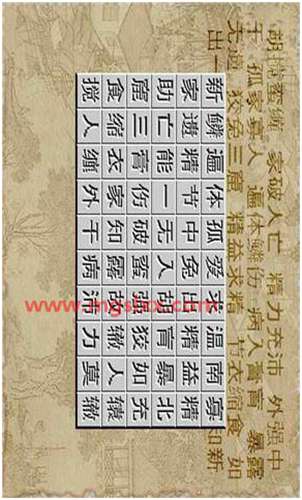 胡搅蛮缠 家破人亡 精力充沛 外强中
干 孤家寡人 遍体鳞伤 病入膏肓 暴露
无遗 狡兔三窟 精益求精 节衣缩食 如
出一 知新
新鳞遍体孤爱求温南寡
家遗精节中兔出精益精
助亡能一无入胡肓暴北
窟三膏伤破蛮强狡如充
食缩衣家知露故辙人辕
搅人缠外干病沛力莫辙
www.mgslxx.com